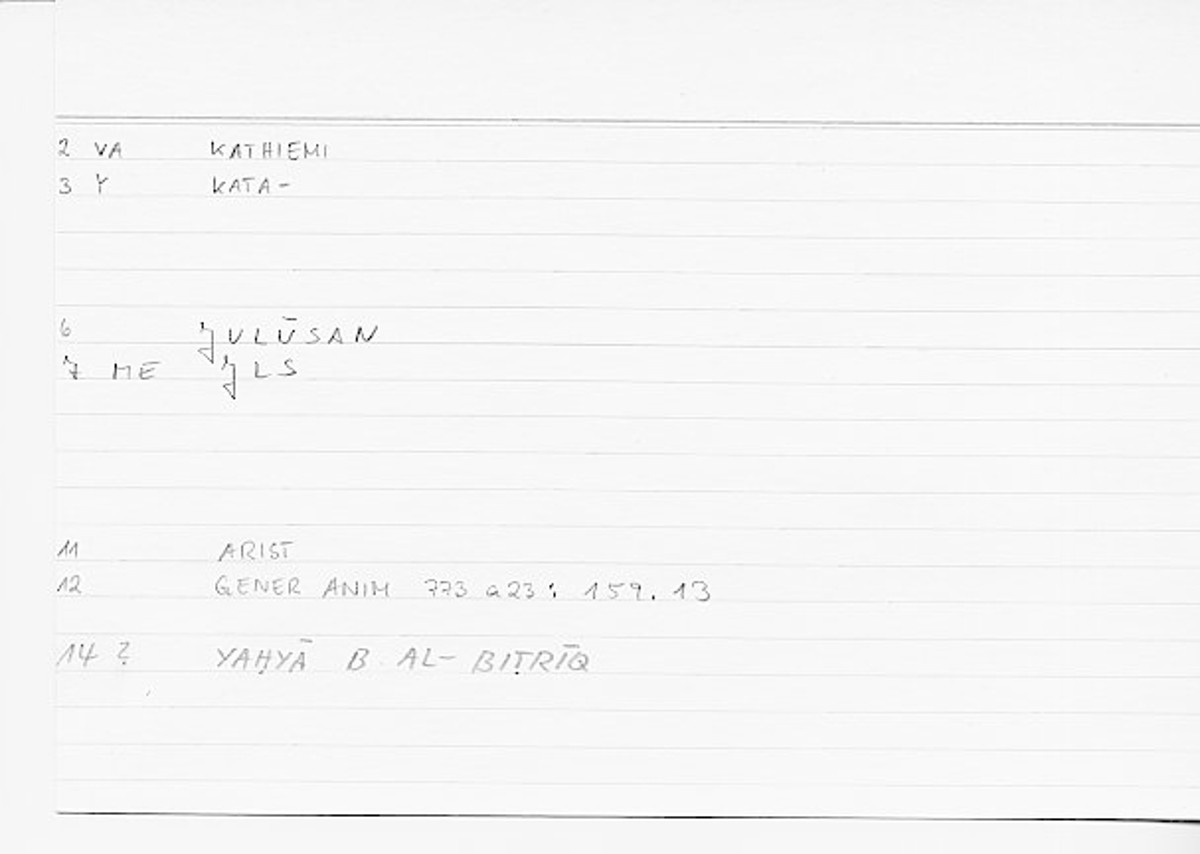 2 VA KATHIEMI
3 Y KATA-
6 JULŪSAN
7 ME JLS
11 ARIST
12 GENER ANIM 773 a23: 159.13
14 ? YAḤYĀ B. AL-BIṬRĪQ